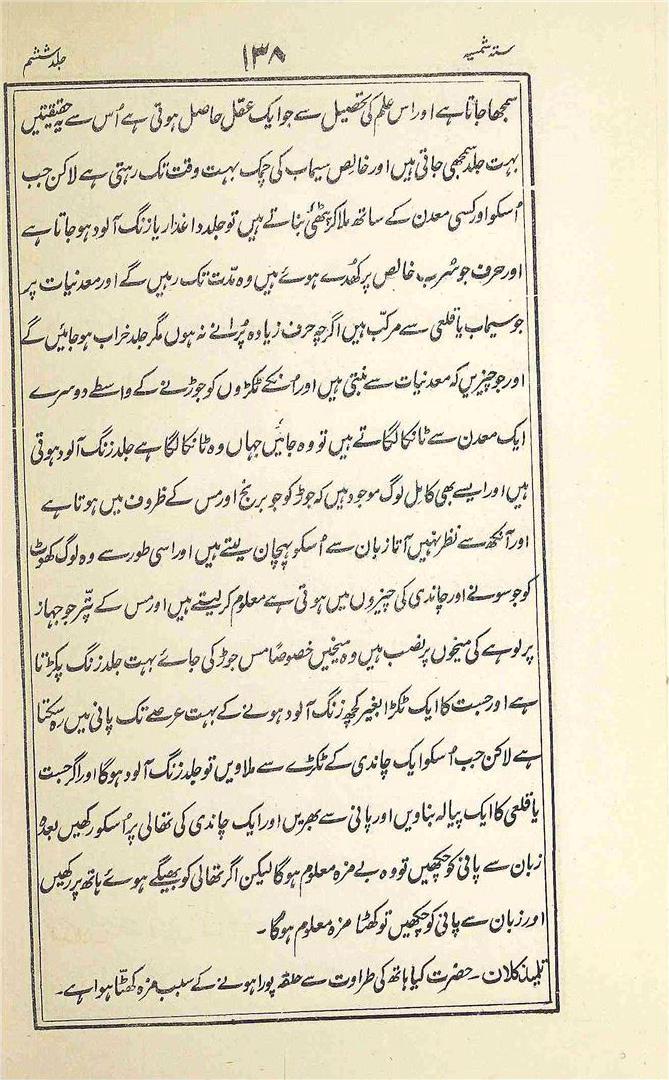 ستہ شمسیہ ۱۳۸ جلد ششم
سمجھا جاتا ہے اور اس علم کی تحصیل سے جو ایک عقل حاصل ہوتی ہے اُس سے یہ حقیقتیں
بہت جلد سمجھی جاتی ہیں اور خالص سیماب کی چمک بہت وقت تک رہتی ہے لاکن جب
اُسکو اور کسی معدن کے ساتھ ملا کر بناتے ہیں تو جلد داغدار یا زنگ آلود ہو جاتا ہے
اور حرف جو سُرب خالص پر کھُدے ہوئے ہیں وہ مدّت تک رہیں گے اور معدنیات پر
جو سیماب یا قلعی سے مرکّب ہیں اگرچہ حرف زیادہ پُرانے نہ ہوں مگر جلد خراب ہو جائیں گے
اور جو چیزیں کہ معدنیات سے بنتی ہیں اور اُنکے ٹکڑوں کو جوڑنے کے واسطے دوسرے
ایک معدن سے ٹانکا لگاتے ہیں تو وہ جائیں جہاں وہ ٹانکا لگا ہے جلد زنگ آلود ہوتی
ہیں اور ایسے بھی کامل لوگ موجود ہیں کہ جوڑ کو جو برنج اور مس کے ظروف میں ہوتا ہے
اور آنکھ سے نظر نہیں آتا زبان سے اُسکو پہچان لیتے ہیں اور اسی طور سے وہ لوگ کھوٹ
کو جو سونے اور چاندی کی چیزوں میں ہوتی ہے معلوم کر لیتے ہیں اور مس کے پتّر جو جہاز
پر لوہے کی میخوں پر نصب ہیں وہ میخیں خصوصاً مس جوڑ کی جائے بہت جلد زنگ پکڑتا
ہے اور جست کا ایک ٹکڑا بغیر کچھ زنگ آلود ہونے کے بہت عرصے تک پانی میں رہ سکتا
ہے لاکن جب اُسکو ایک چاندی کے ٹکڑے سے ملاویں تو جلد زنگ آلود ہوگا اور اگر جست
یا قلعی کا ایک پیالہ بناویں اور پانی سے بھریں اور ایک چاندی کی تھالی پر اُسکو رکھیں بعدہ
زبان سے پانی کو چکھیں تو وہ بے مزہ معلوم ہوگا لیکن اگر تھالی کو بھیگے ہوئے ہاتھ پر رکھیں
اور زبان سے پانی کو چکھیں تو کھٹا مزہ معلوم ہوگا۔
تلمیذ کلان۔ حضرت کیا ہاتھ کی طراوت سے حلقہ پورا ہونے کے سبب مزہ کھٹّا ہوا ہے۔